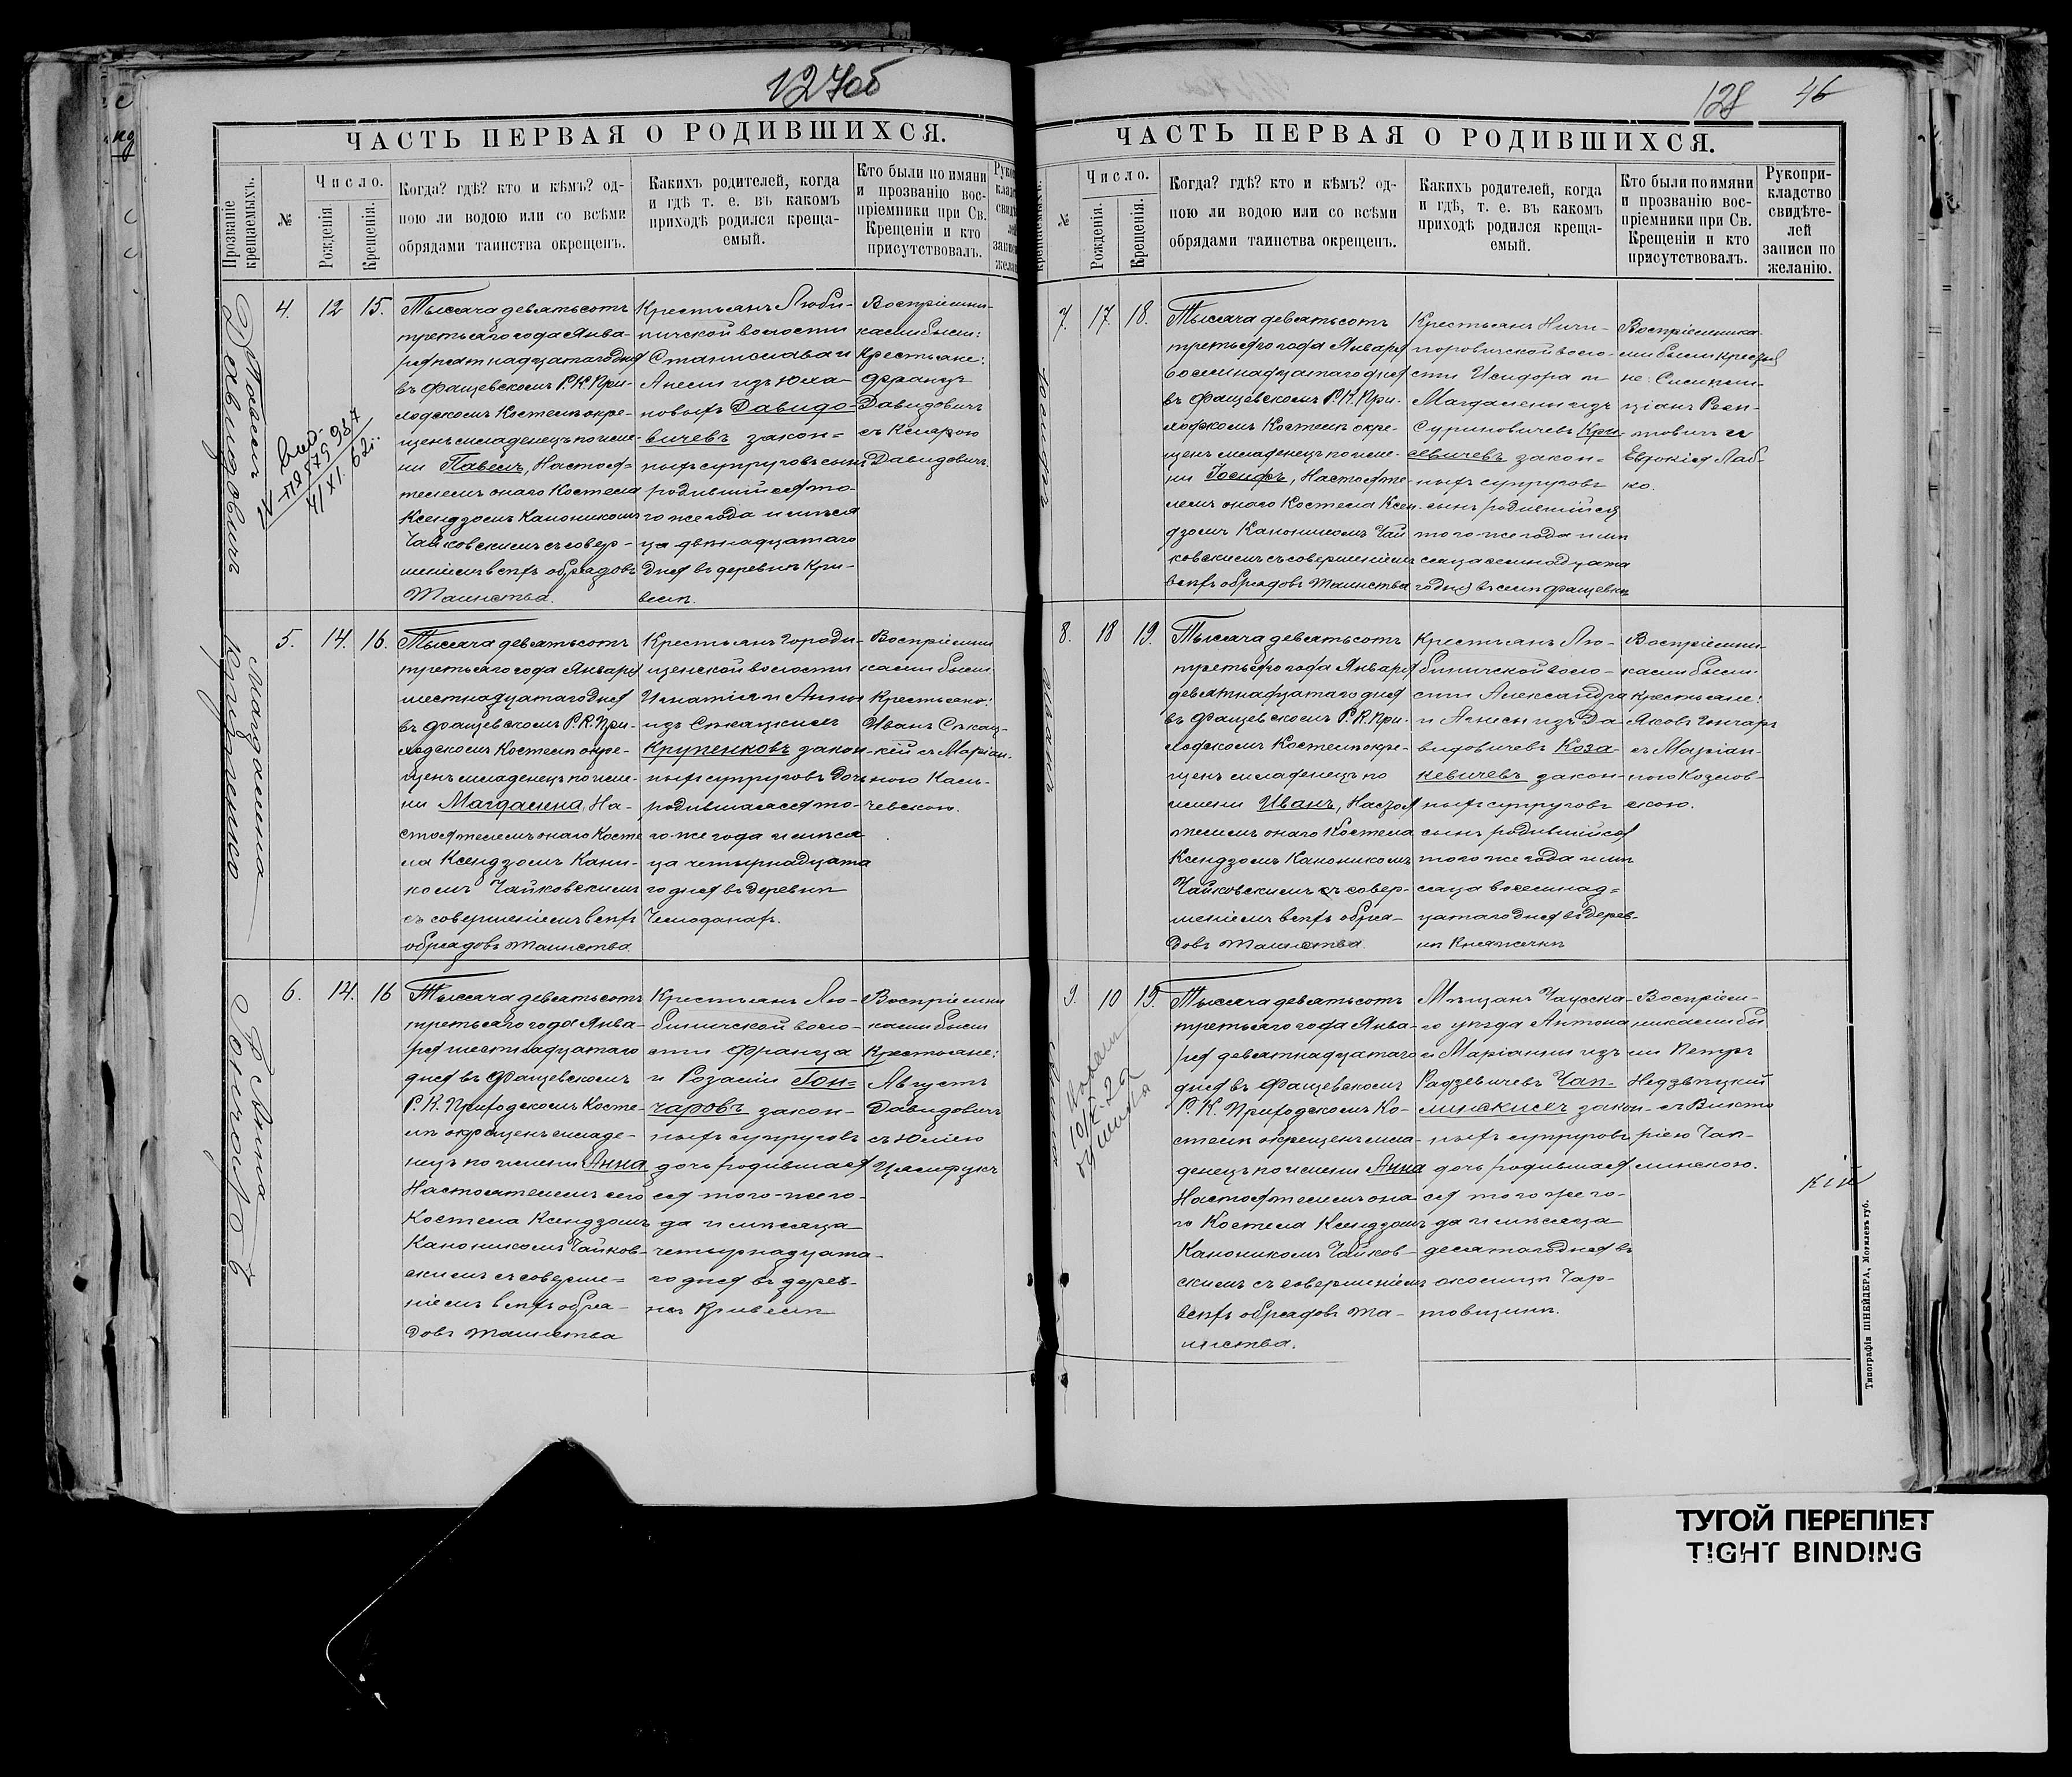 127об
ЧАСТЬ ПЕРВАЯ О РОДИВШИХСЯ.
Прозваніе крещаемыхъ.
№
Число.
Рожденія.
Крещенія.
Когда? гдѣ? кто и кѣмъ? од-
ною ли водою или со всѣми
обрядами таинства окрещенъ.
Какихъ родителей, когда
и гдѣ т. е. въ какомъ
приходѣ родился креща-
емый.
Кто были по имяни
и прозванію вос-
пріемники при Св.
Крещеніи и кто
присутствовалъ.
Павелъ
Давидовичъ
4. 12 15.
Тысяча девятьсотъ
третьяго года Янва-
ря пятнадцатаго дня
въ Фащевскомъ Р. К. При-
ходскомъ Костелѣ окре-
щенъ младенецъ по име-
ни Павелъ, Настоя-
телемъ онаго Костела
Ксендзомъ Каноникомъ
Чайковскимъ съ совер-
шеніемъ всѣхъ обрядовъ
Таинства.
Крестьянъ Люби-
нической волости
Станислава и
Анели изъ Юха-
новыхъ Давидо-
вичевъ закон=
ныхъ супруговъ сынъ
родившійся то-
го же года и мѣся-
ца двѣнадцатаго
дня въ деревнѣ Кри-
вели.
Воспріемни-
ками были:
Крестьяне:
Францъ
Давидовичъ
съ Кларою
Давидовичъ.
Магдалина
Крупенько
5. 14. 16.
Тысяча девятьсотъ
третьяго года Января
шестнадцатаго дня
въ Фащевскомъ Р. К. При-
ходскомъ Костелѣ окре-
щенъ младенецъ по име-
ни Магдалена, На-
стоятелемъ онаго Косте
ла Ксендзомъ Кани-
комъ Чайковскимъ
съ совершеніемъ всѣхъ
обрядовъ таинства
Крестьянъ Городи-
щенской волости
Игнатія и Анны
изъ Сткацкихъ
Крупенковъ закон-
ныхъ супруговъ дочь
родившаяся то-
го-же года и мѣся
ца четырнадцата
го дня въ деревнѣ
Чемоданахъ.
Воспріемни
ками были
Крестьяне:
Иванъ Сткац-
кій съ Маріан-
ною Каль-
чевскою.
Анна
Гончаровъ
6. 14. 16
Тысяча девятьсотъ
третьяго года Янва-
ря шестнадцатаго
дня въ Фащевскомъ
Р. К. Приходскомъ Косте-
лѣ окрещенъ младе-
нецъ по имени Анна
Настоятелемъ сего
Костела Ксендзомъ
Каноникомъ Чайков-
скимъ съ соверше=
ніемъ всѣхъ обря-
довъ таинства
Крестьянъ Лю-
бинической воло-
сти Франца
и Розаліи Гон=
чаровъ закон-
ныхъ супруговъ
дочь родившая
ся того-же го-
да и мѣсяца
четырнадцата-
го дня въ дерев-
нѣ Кривели
Воспріемни
ками были
Крестьяне:
Августъ
Давидовичъ
съ Юліею
128
46
ЧАСТЬ ПЕРВАЯ О РОДИВШИХСЯ.
крещаемыхъ.
№
Число.
Рожденія.
Крещенія.
Когда? гдѣ? кто и кѣмъ? од-
ною ли водою или со всѣми
обрядами таинства окрещенъ.
Какихъ родителей, когда
и гдѣ, т. е. въ какомъ
приходѣ родился креща-
емый.
Кто были по имяни
и прозванію вос-
пріемники при Св.
Крещеніи и кто
присутствовалъ.
Рукопри-
кладство
свидѣте-
лей
записи по
желанію.
7. 17. 18.
Тысяча девятьсотъ
третьяго года Января
восемнадцатаго дня
въ Фащевскомъ Р. К. При-
ходскомъ Костелѣ окре-
щенъ младенецъ по име-
ни Іосифъ, Настояте-
лемъ онаго Костела Ксен-
дзомъ Каноникомъ Чай
ковскимъ съ совершеніемъ
всѣхъ обрядовъ таинства
Крестьянъ Ничи-
поровичской воло-
сти Исидора и
Магдалены изъ
Суриновичевъ Кри-
севичевъ закон=
ныхъ супруговъ
сынъ родившійся
того-же года и мѣ
сяца семнадцата
го дня въ селѣ Фащевкѣ
Воспріемника-
ми были крестья
не:
Евфкія Лаб-
ко.
8. 18 19.
Тысяча девятьсотъ
третьяго года Января
девятнадцатаго дня
въ Фащевскомъ Р. К. При-
ходскомъ Костелѣ окре-
щенъ младенецъ по
имени Иванъ, Настоя
телемъ онаго Костела
Ксендзомъ Каноникомъ
Чайковскимъ съ совер-
шеніемъ всѣхъ обря-
довъ таинства.
Крестьянъ Лю-
бинической воло-
сти Александра
и Агнеи изъ Да-
видовичевъ Коза-
кевичевъ закон-
ныхъ супруговъ
сынъ родившійся
того же года и мѣ
сяца восемнад=
цатаго дня въ дерев-
нѣ Княжичи
Воспріемни-
ками были
крестьяне:
Яковъ Гончаръ
съ Маріан-
ною Козлов-
скою.
9. 10 19.
Тысяча девятьсотъ
третьяго года Янва-
ря девятнадцатаго
дня въ Фащевскомъ
Р. К. Приходскомъ Ко-
стелѣ окрещенъ мла-
денецъ по имени Анна
Настоятелемъ она
го Костела Ксендзомъ
Каноникомъ Чайков-
скимъ съ совершеніемъ
всѣхъ обрядовъ та-
инства.
Мѣщанъ Чаусска-
го уѣзда Антона
и Маріанны изъ
Радзевичевъ Чап-
линскихъ закон-
ныхъ супруговъ
дочь родившая
ся того же го-
да и мѣсяца
десятаго дня въ
околицѣ Чар-
товщинѣ.
Воспріем-
никами бы
ли Петръ
Недзвѣцкій
съ Викто
ріею Чап-
линскою.
кій
Типографія ШНЕЙДЕРА, Могилевъ губ.
ТУГОЙ ПЕРЕПЛЕТ
TIGHT BINDING